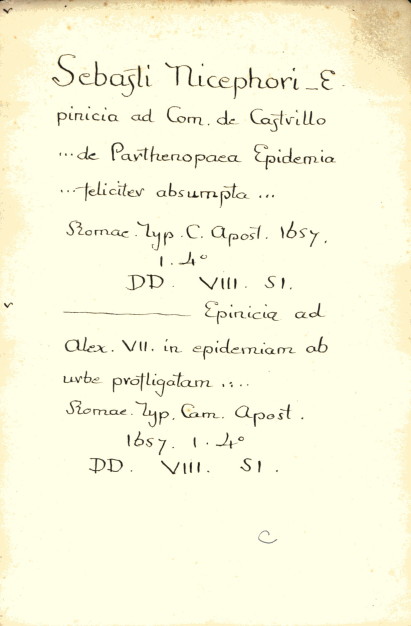 Sebasti Nicephori _ E
pinicia ad Com. de Castrillo
... de Parthenopaea Epidemia
... feliciter absumpta ...
Romae. Typ. C. Apost. 1657.
1. 4°
DD. VIII. 51.
———— Epinicia ad
Alex. VII. in epidemiam ab
urbe profligatam ....
Romae. Typ. Cam. Apost.
1657. 1. 4°
DD. VIII. 51.
C